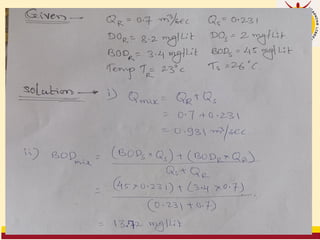 Given - Q_R = 0.7 m³/sec Q_S = 0.231
DO_R = 8.2 mg/Lit DO_S = 2 mg/Lit
BOD_R = 3.4 mg/Lit BOD_S = 45 mg/Lit
Temp. T_R = 23°C T_S = 26°C
Solution → i) Q_max = Q_R + Q_S
= 0.7 + 0.231
= 0.931 m³/sec
ii) BOD_mix = (BOD_S × Q_S) + (BOD_R × Q_R)
Q_S + Q_R
= (45 × 0.231) + (3.4 × 0.7)
(0.231 + 0.7)
= 13.72 mg/Lit